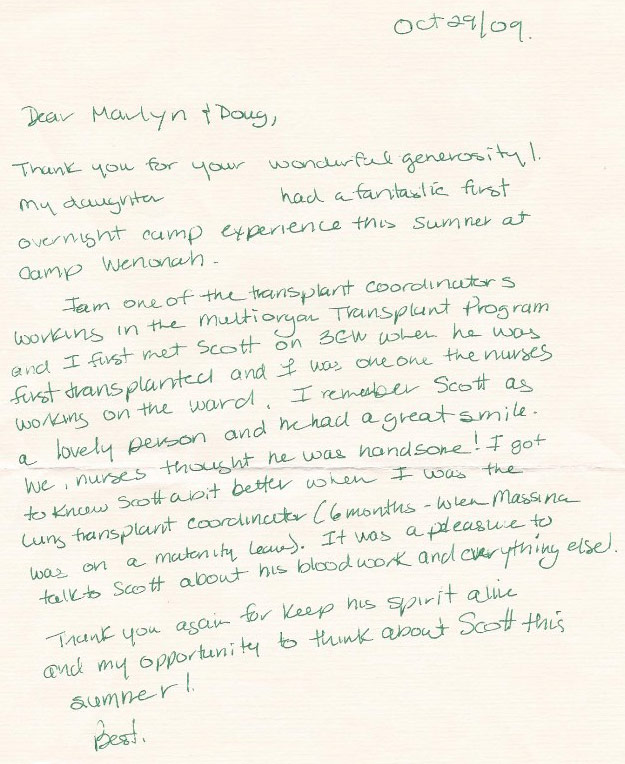 Oct 29/09.
Dear Marlyn & Doug,
Thank you for your wonderful generosity!
My daughter had a fantastic first
overnight camp experience this summer at
Camp Wenonah.
I am one of the transplant coordinators
working in the multiorgan Transplant Program
and I first met Scott on 3GW when he was
first transplanted and I was one one the nurses
working on the ward. I remember Scott as
a lovely person and he had a great smile.
We, nurses thought he was handsome! I got
to know Scott a bit better when I was the
lung transplant coordinator (6 months - when Massina
was on a maternity leave). It was a pleasure to
talk to Scott about his bloodwork and everything else!.
Thank you again for keep his spirit alive
and my opportunity to think about Scott this
summer!
Best.